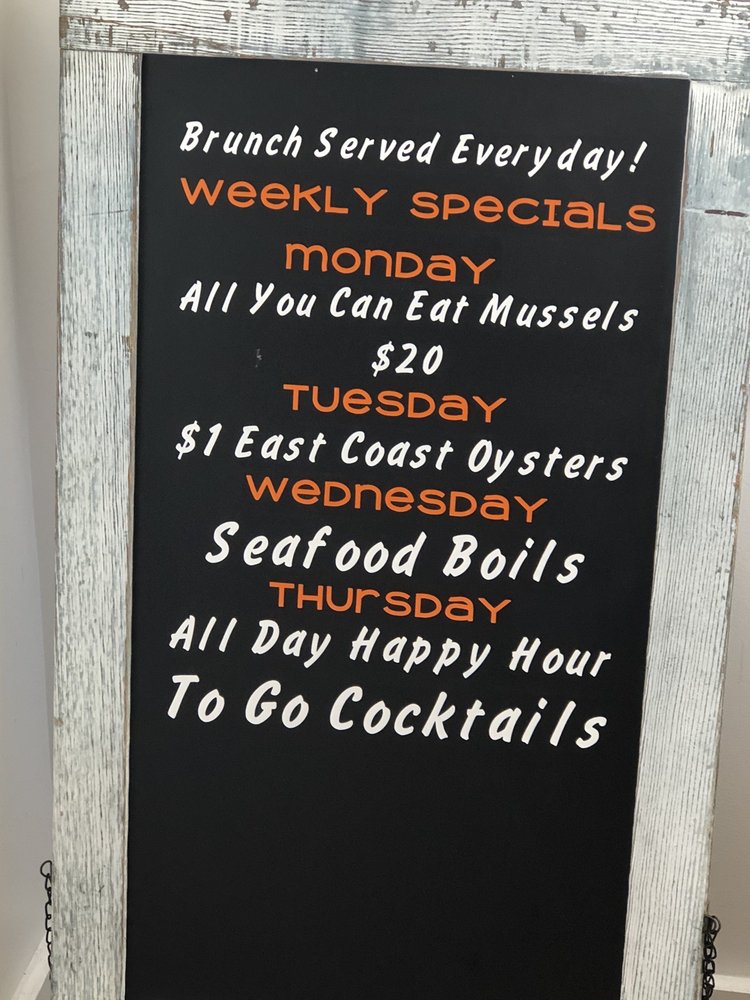 Brunch Served Everyday!
WEEKLY SPECIALS
MONDAY
All You Can Eat Mussels
$20
TUESDAY
$1 East Coast Oysters
WEDNESDAY
Seafood Boils
THURSDAY
All Day Happy Hour
To Go Cocktails